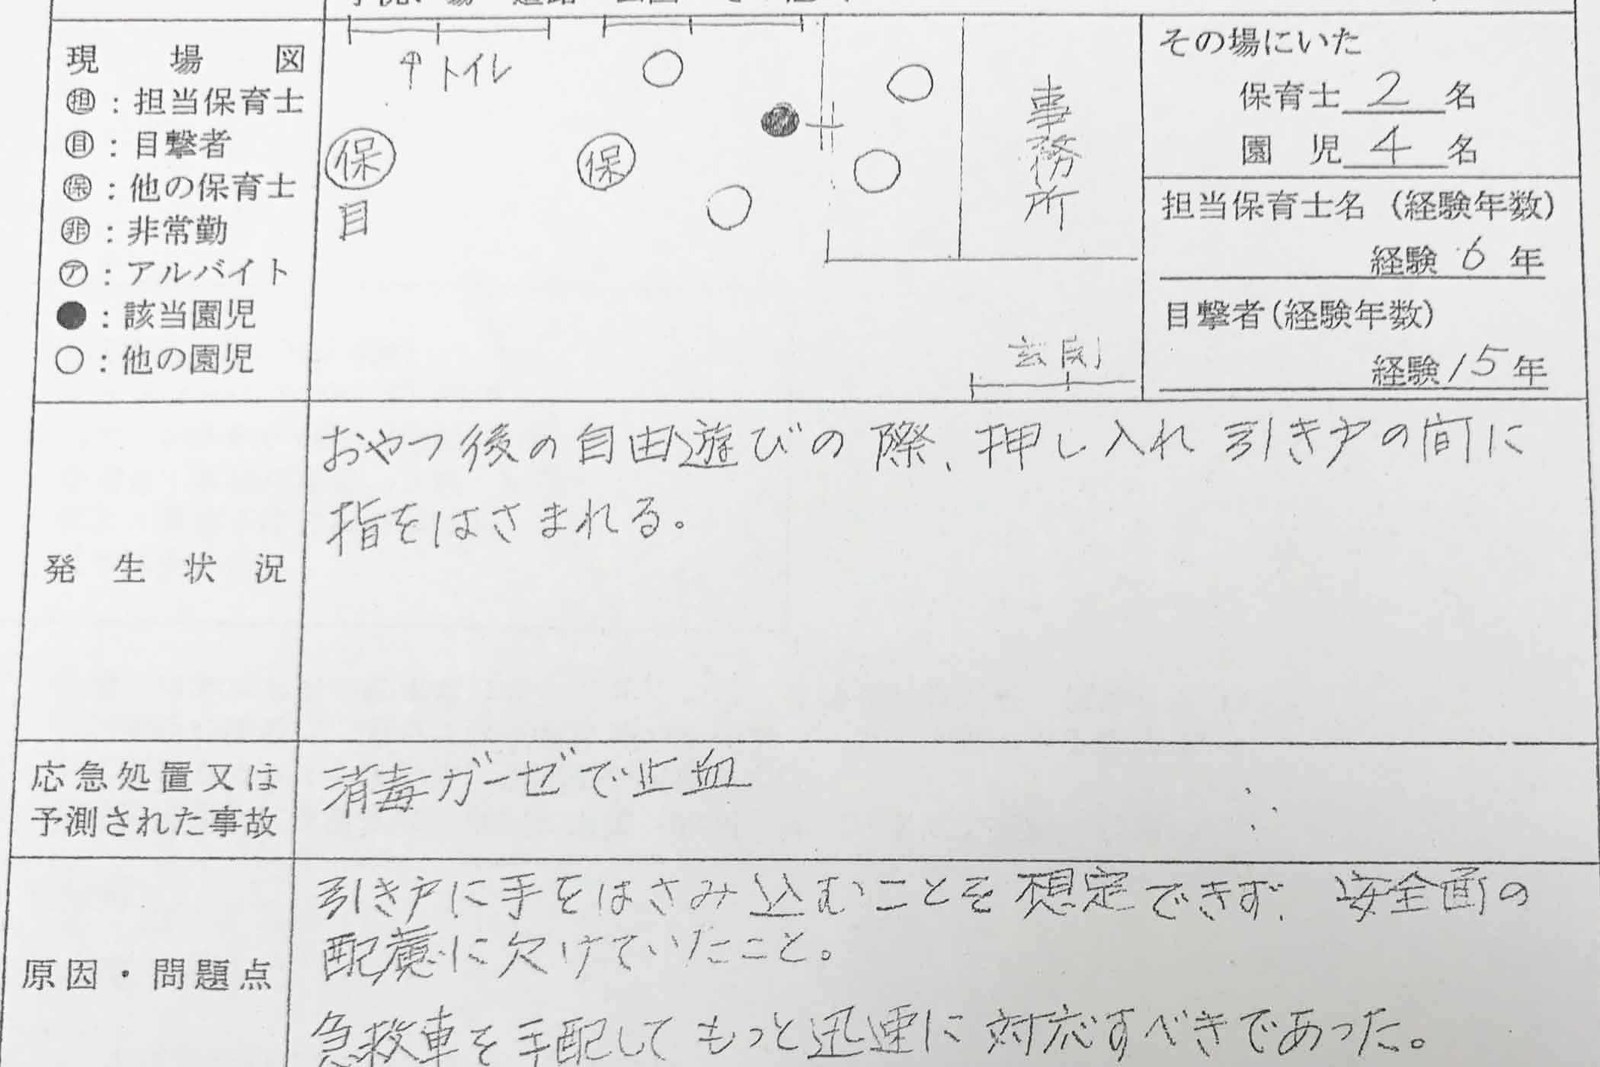 現場図
㊣担：担当保育士
目：目撃者
保：他の保育士
非：非常勤
ア：アルバイト
●：該当園児
○：他の園児
↑トイレ
保
目
保
事務所
玄関
その場にいた
保育士 2 名
園児 4 名
担当保育士名（経験年数）
経験 6 年
目撃者（経験年数）
経験 15 年
発生状況
おやつ後の自由遊びの際、押し入れ引き戸の間に
指をはさまれる。
応急処置又は
予測された事故
消毒ガーゼで止血
原因・問題点
引き戸に手をはさみ込むことを想定できず、安全面の
配慮に欠けていたこと。
急救車を手配してもっと迅速に対応すべきであった。